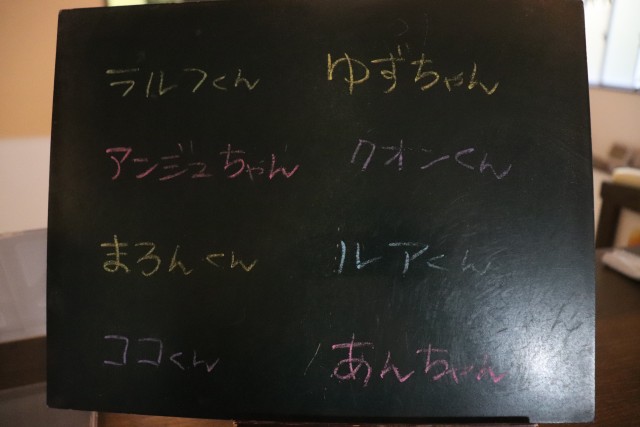 ラルフくん
ゆずちゃん
アンジュちゃん
クオンくん
まろんくん
ルアくん
ココくん
あんちゃん